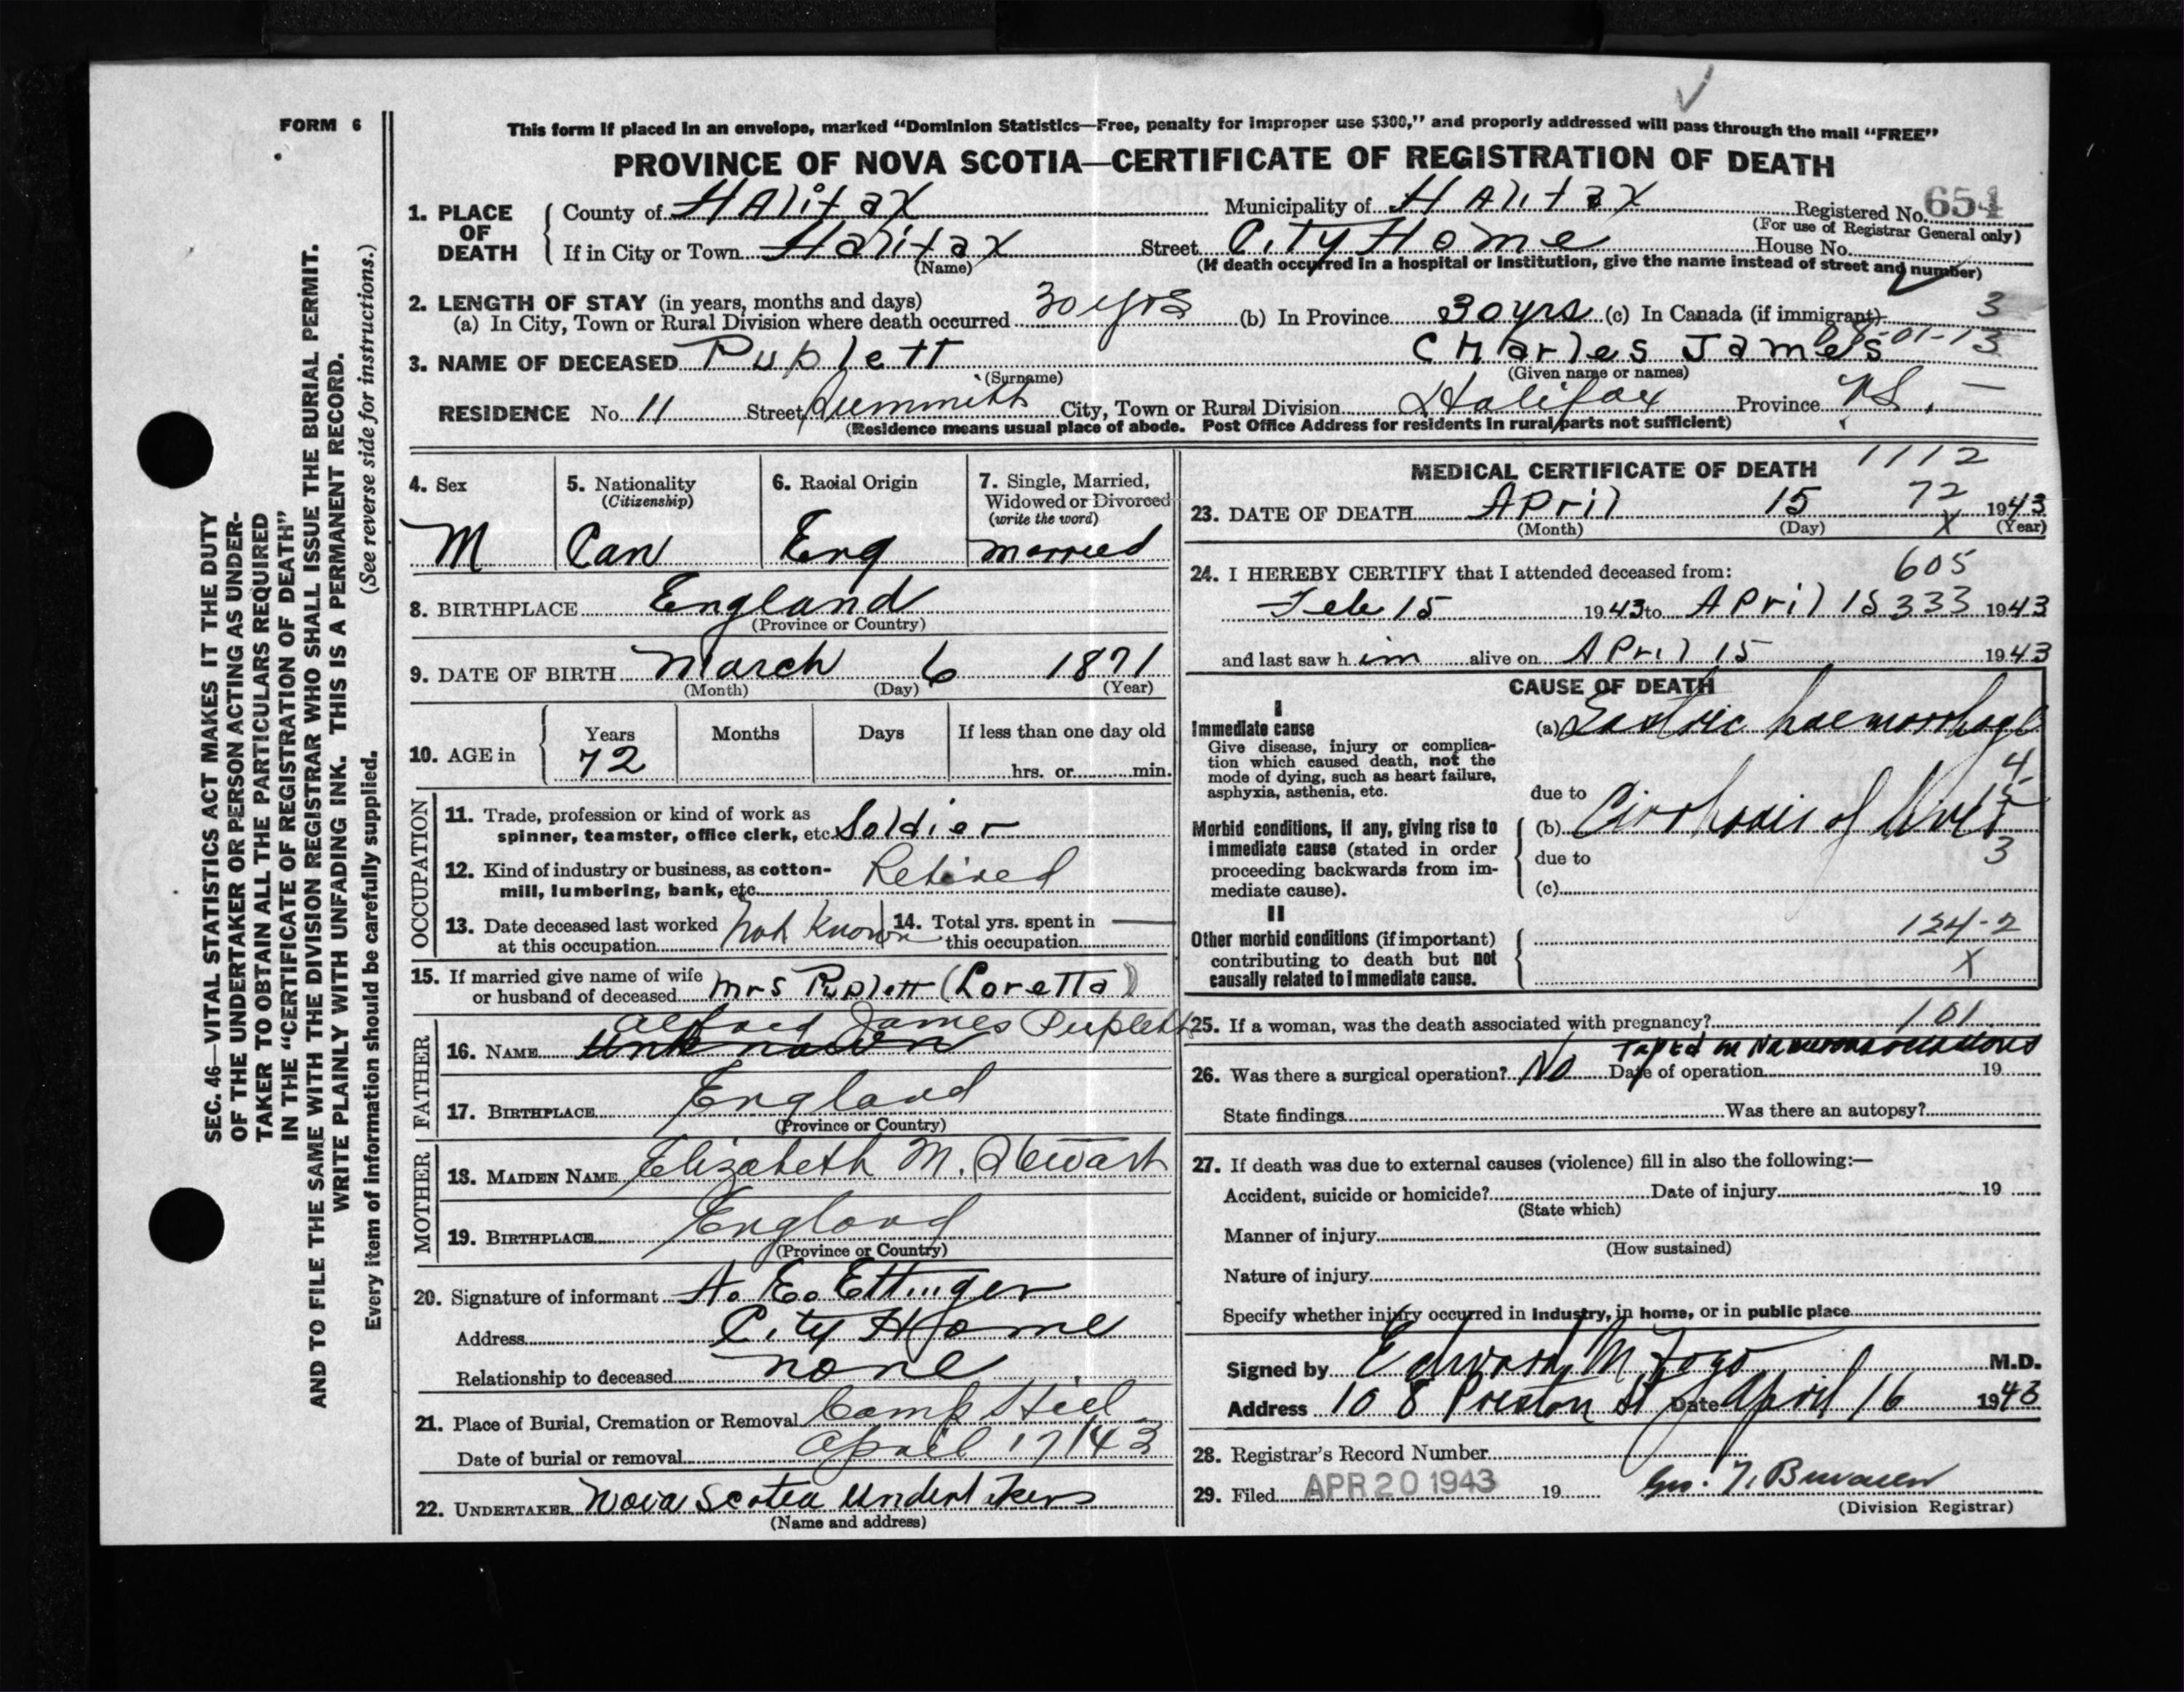 FORM 6
This form if placed in an envelope, marked “Dominion Statistics—Free, penalty for improper use $300,” and properly addressed will pass through the mail “FREE”
PROVINCE OF NOVA SCOTIA—CERTIFICATE OF REGISTRATION OF DEATH
1. PLACE OF DEATH
County of Halifax Municipality of Halifax Registered No. 654
(For use of Registrar General only)
If in City or Town Halifax Street City Home House No.
(Name) (If death occurred in a hospital or institution, give the name instead of street and number)
2. LENGTH OF STAY (in years, months and days)
(a) In City, Town or Rural Division where death occurred 30 yrs (b) In Province 30 yrs (c) In Canada (if immigrant) 3
3. NAME OF DECEASED Puplett Charles James
(Surname) (Given name or names)
RESIDENCE No. 11 Street City, Town or Rural Division Halifax Province N.S. —
(Residence means usual place of abode. Post Office Address for residents in rural parts not sufficient)
4. Sex
M
5. Nationality
(Citizenship)
Can
6. Racial Origin
Eng
7. Single, Married,
Widowed or Divorced
(write the word)
married
8. BIRTHPLACE England
(Province or Country)
9. DATE OF BIRTH March 6 1871
(Month) (Day) (Year)
10. AGE in
Years Months Days If less than one day old
72
hrs. or min.
OCCUPATION
11. Trade, profession or kind of work as
spinner, teamster, office clerk, etc. Soldier
12. Kind of industry or business, as cotton-
mill, lumbering, bank, etc. Retired
13. Date deceased last worked
at this occupation Not Known
14. Total yrs. spent in
this occupation —
15. If married give name of wife
or husband of deceased Mrs Puplett (Loretta)
FATHER
Alfred James Puplett
16. NAME Unknown
17. BIRTHPLACE England
(Province or Country)
MOTHER
18. MAIDEN NAME Elizabeth M. Stewart
19. BIRTHPLACE England
(Province or Country)
20. Signature of informant A. E. Ettinger
Address City Home
Relationship to deceased none
21. Place of Burial, Cremation or Removal Camp Hill
Date of burial or removal April 17/43
22. UNDERTAKER Nova Scotia Undertakers
(Name and address)
MEDICAL CERTIFICATE OF DEATH 1112
72
23. DATE OF DEATH April 15 X 1943
(Month) (Day) (Year)
24. I HEREBY CERTIFY that I attended deceased from: 605
Feb 15 1943 to April 15 333 1943
and last saw him alive on April 15 1943
CAUSE OF DEATH
I
Immediate cause
Give disease, injury or complica-
tion which caused death, not the
mode of dying, such as heart failure,
asphyxia, asthenia, etc.
(a) Gastric haemorrhage
4
due to
Morbid conditions, if any, giving rise to
immediate cause (stated in order
proceeding backwards from im-
mediate cause).
(b) Cirrhosis of liver
due to 3
(c)
II
Other morbid conditions (if important)
contributing to death but not
causally related to immediate cause.
124-2
X
25. If a woman, was the death associated with pregnancy? 101
26. Was there a surgical operation? No Date of operation 19
State findings Was there an autopsy?
27. If death was due to external causes (violence) fill in also the following:—
Accident, suicide or homicide? Date of injury 19
(State which)
Manner of injury
(How sustained)
Nature of injury
Specify whether injury occurred in industry, in home, or in public place
Signed by Edward M Fogo M.D.
Address 108 Preston St Date April 16 1943
28. Registrar's Record Number
29. Filed APR 20 1943 19
(Division Registrar)
SEC. 46—VITAL STATISTICS ACT MAKES IT THE DUTY
OF THE UNDERTAKER OR PERSON ACTING AS UNDER-
TAKER TO OBTAIN ALL THE PARTICULARS REQUIRED
IN THE “CERTIFICATE OF REGISTRATION OF DEATH”
AND TO FILE THE SAME WITH THE DIVISION REGISTRAR WHO SHALL ISSUE THE BURIAL PERMIT.
WRITE PLAINLY WITH UNFADING INK. THIS IS A PERMANENT RECORD.
Every item of information should be carefully supplied. (See reverse side for instructions.)